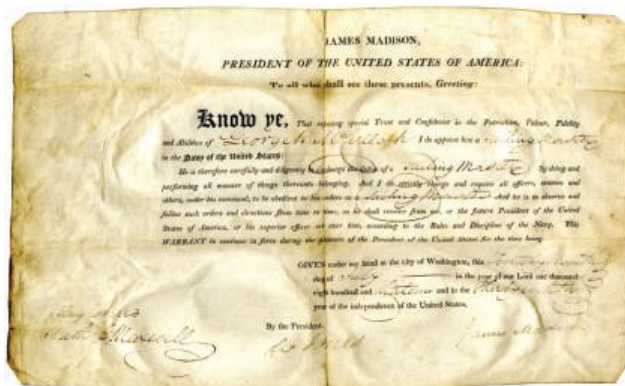 JAMES MADISON,
PRESIDENT OF THE UNITED STATES OF AMERICA:
To all who shall see these presents, Greeting:
Know ye, That reposing special Trust and Confidence in the Patriotism, Valour, Fidelity
and Abilities of I do appoint him a Sailing Master
in the Navy of the United States:
He is therefore carefully and diligently to discharge the duties of a Sailing Master By doing and
performing all manner of things thereunto belonging. And I do strictly charge and require all officers, seamen and
others, under his command, to be obedient to his orders as Sailing Master And he is to observe and
follow such orders and directions from time to time, as he shall receive from me, or the future President of the United
States of America, or his superior officer set over him, according to the Rules and Discipline of the Navy. This
WARRANT to continue in force during the pleasure of the President of the United States for the time being.
GIVEN under my hand at the city of Washington, this
day of July in the year of our Lord one thousand
eight hundred and and in the
year of the independence of the United States.
By the President.
James Madison